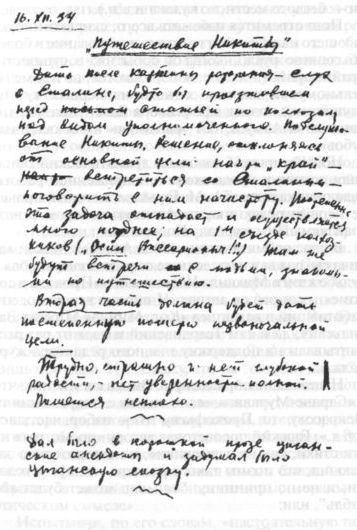 16. XII. 34
„Путешествие Никиты"
Дать после картины разорения – слух
о Сталине, будто бы проезжавшем
перед статьей по колхозам
под видом уполномоченного.
вание Никиты. Решение, отклоняясь
от основной цели найти „край"
встретиться со Сталиным –
поговорить с ним начистоту. Постепенно
эта задача отпадает и осуществляется
много позднее, на 1м съезде колхоз-
ников („Осип Виссарионыч!!") Там же
будут встречи с людьми, знакомы-
ми по путешествию.
Вторая часть должна будет дать
постепенную потерю первоначальной
цели.
Трудно, страшно и нет глубокой
радости, нет уверенности полной.
Пишется неплохо.
Дал было в хорошей прозе
ские анекдоты и задумал было
цыганскую сказку.